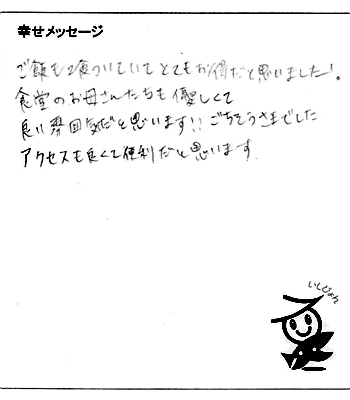 幸せメッセージ
ご飯も2食ついていてとてもお得だと思いました!。
食堂のお母さんたちも優しくて
良い雰囲気だと思います!! ごちそうさまでした
アクセスも良くて便利だと思います